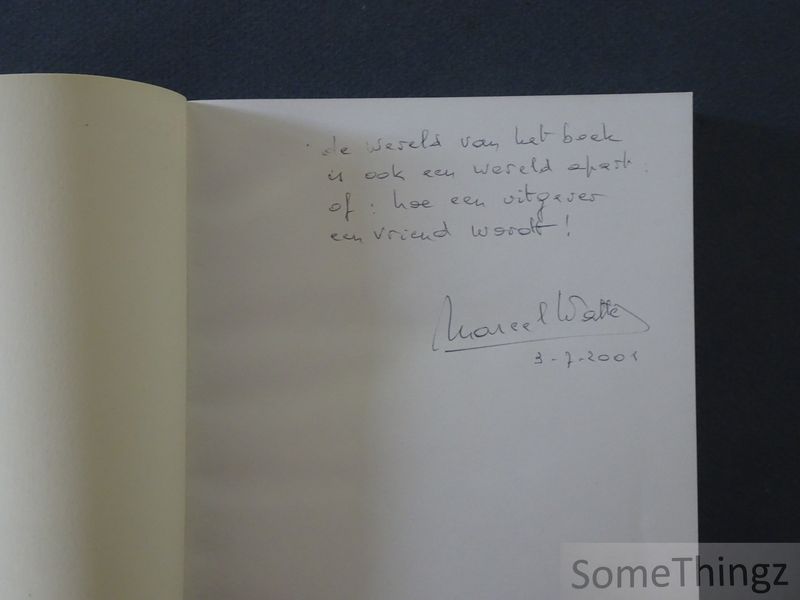 de wereld van het boek
is ook een wereld apart.
of : hoe een uitgever
een vriend wordt !
Marcel Watte
3-7-2001
SomeThingz